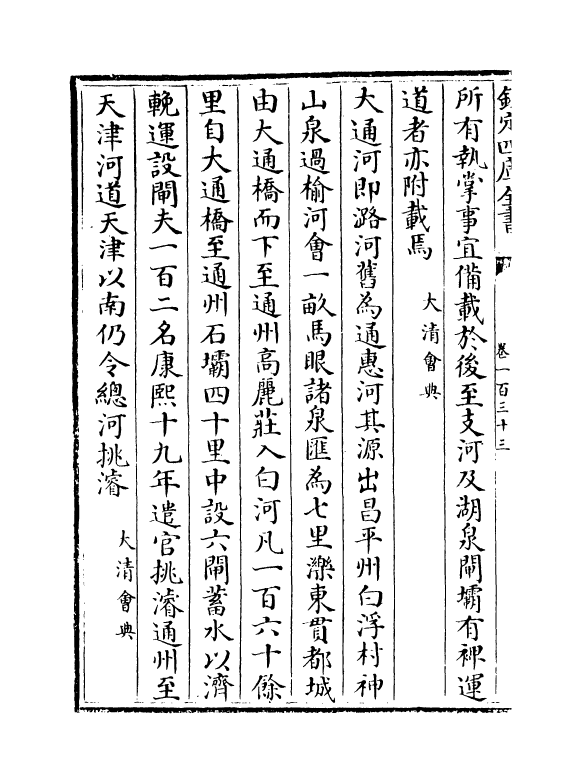 欽定四庫全書
卷一百三十三
所有執掌事宜備載於後至支河及湖泉閘壩有裨運
道者亦附載焉　大清會典
大通河即潞河舊為通惠河其源出昌平州白浮村神
山泉過榆河會一畝馬眼諸泉匯為七里濼東貫都城
由大通橋而下至通州高麗莊入白河凡一百六十餘
里自大通橋至通州石壩四十里中設六閘蓄水以濟
輓運設閘夫一百二名康熙十九年遣官挑濬通州至
天津河道天津以南仍令總河挑濬　大清會典